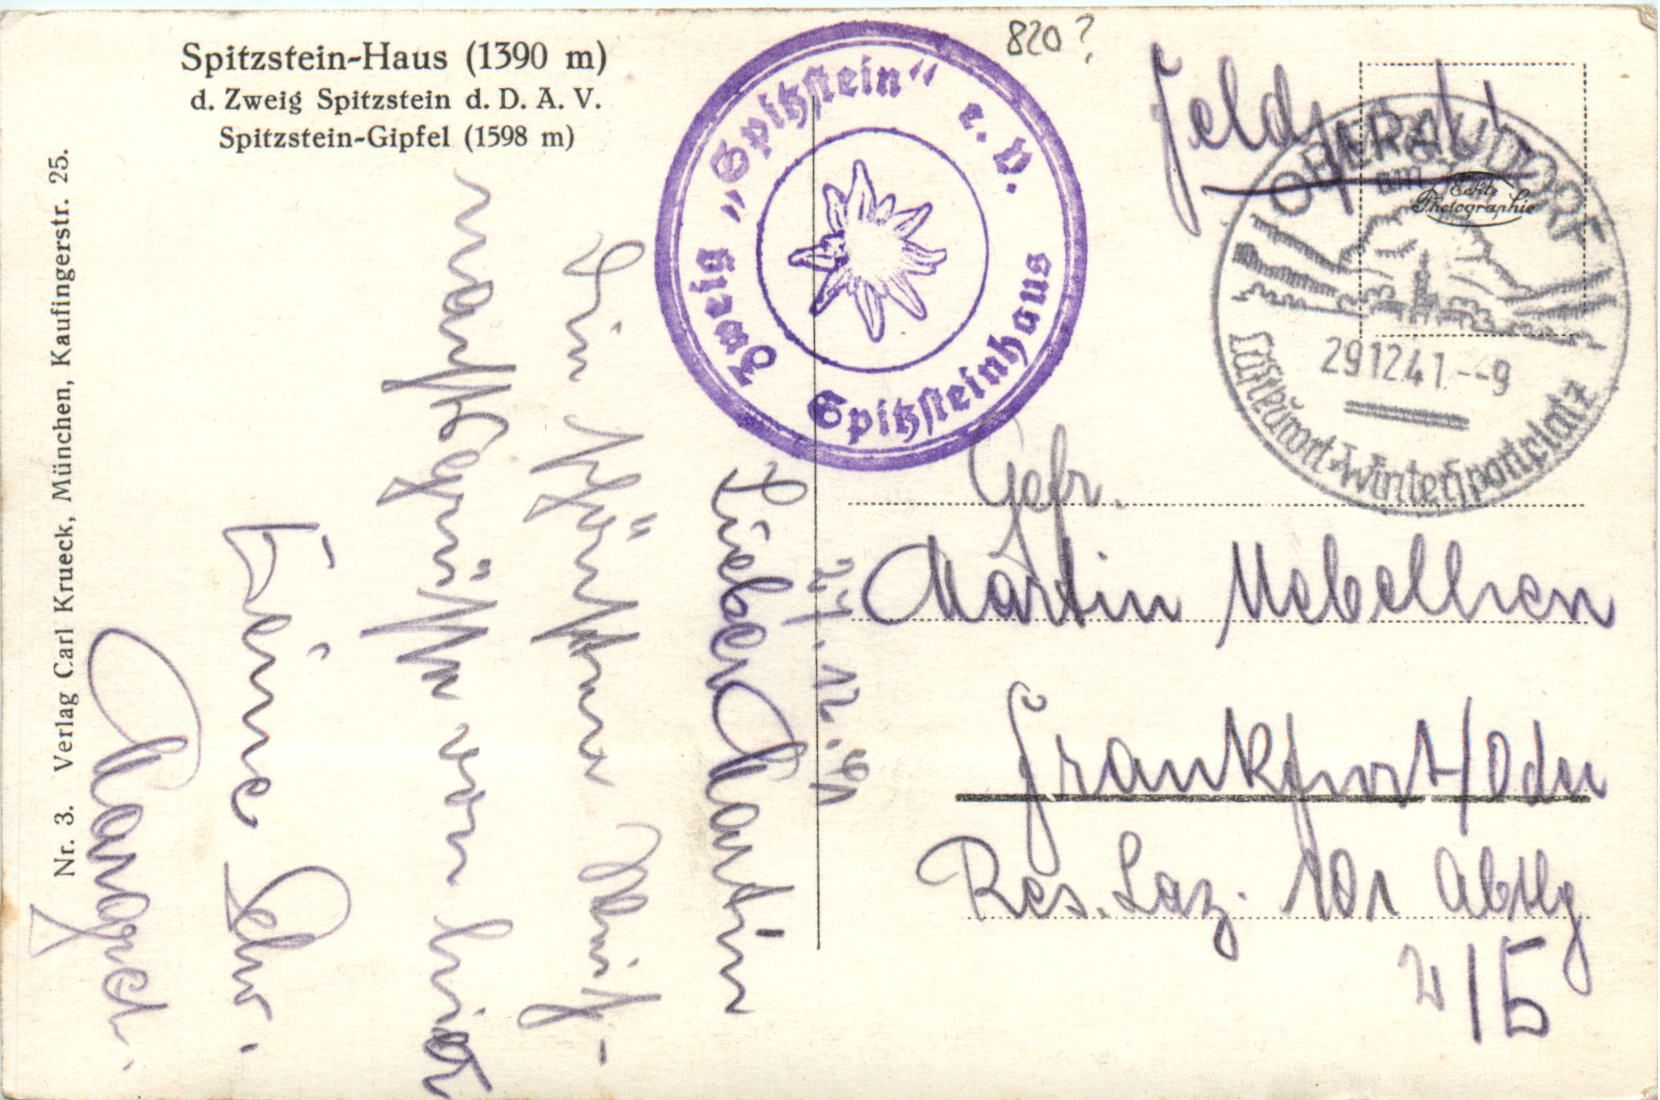 Spitzstein-Haus (1390 m)
d. Zweig Spitzstein d. D. A. V.
Spitzstein-Gipfel (1598 m)
Nr. 3. Verlag Carl Krueck, München, Kaufingerstr. 25.
Zweig „Spitzstein“ e. V.
Spitzsteinhaus
820?
Feldpost!
OBERAUDORF
am
29.12.41.--9
Luftkurort + Wintersportplatz
Echte
Photographie
27.12.41
Lieber Martin
Die schönsten
von hier
Deine Schw.
Margret.
Gefr.
Martin
Frankfurt/Oder
Res. Laz. 101 Abtlg